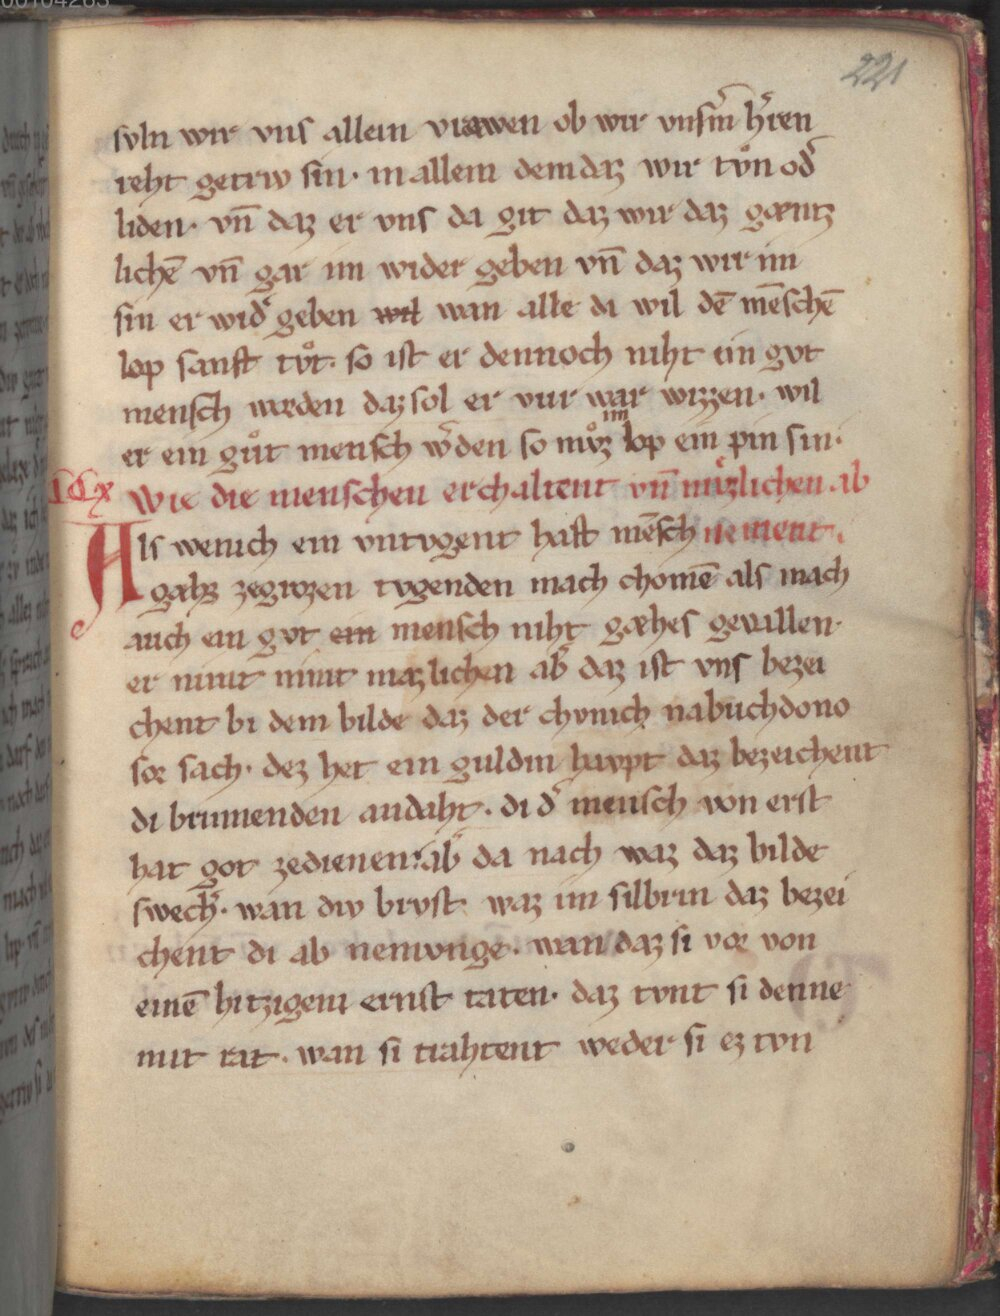 221
svln wir vns allein vrawen ob wir vnsm̄ hr̄en
reht getriv sin · in allem dem daz wir tvͦn od͛
liden · vn̄ daz er vns da git daz wir daz gæntz
lichē vn̄ gar im wider geben vn̄ daz wir im
sin er wid͛ geben wil wan alle di wil dē mēschē
lop sanft tvͦt · so ist er dennoch niht ein gvt
mensch worden daz sol er vur war wizzen · wil
er ein guͦt mensch w͛den so mvͦz im lop ein pin sin ·
wie die menschen erchaltent vn̄ mæzlichen ab
Als wenich ein vntvgent haft mēsch nement ·
gæhs zegrozen tvgenden mach chomē als mach
auch ein gvt ein mensch niht gæhes gevallen ·
er nimt nimt mæzlichen ab͛ daz ist vns bezei
chent bi dem bilde daz der chvnich nabuchdono
sor sach · dez het ein guldin havpt daz bezeichent
di brinnenden andaht · di d͛ mensch von erst
hat got zedienen : ab͛ da nach waz daz bilde
swech͛ · wan div brvst waz im silbrin daz bezei
chent di ab nemvnge · wan daz si vor von
einē hitzigem ernst taten · daz tvnt si denne
mit rat · wan si trahtent weder si ez tvn